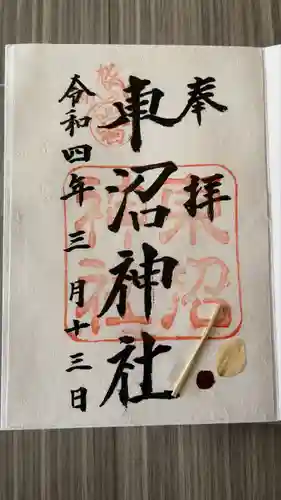 奉拝
東沼神社
令和四年三月十三日
東沼
神社